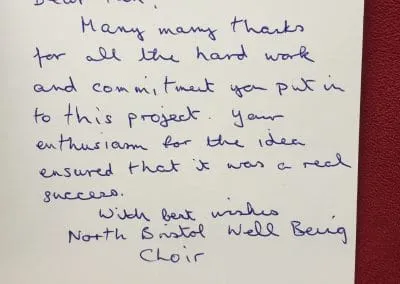 Dear
Many many thanks
for all the hard work
and commitment you put in
to this project. Your
enthusiasm for the idea
ensured that it was a real
success.
With best wishes
North Bristol Well Being
Choir